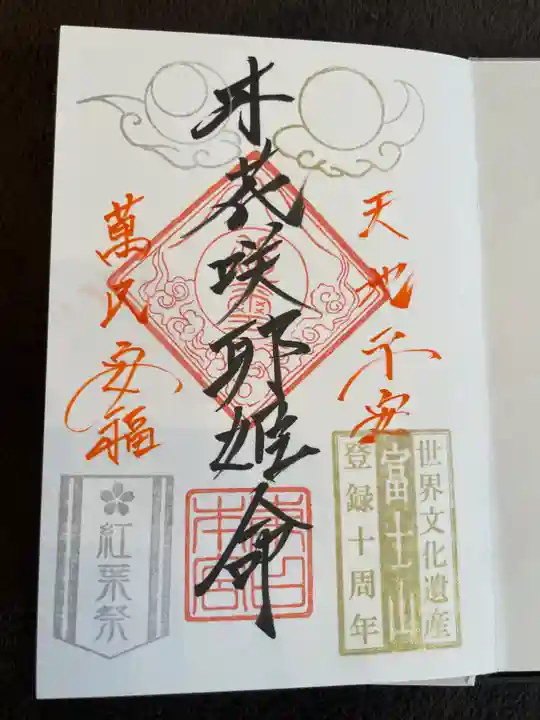 天地平安
木花咲耶姫命
萬民安福
世界文化遺産
富士山
登録十周年
紅葉祭